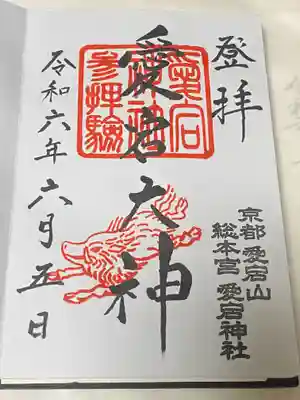 登拝
京都 愛宕山
総本宮 愛宕神社
愛宕大神
愛宕
参拝驗
令和六年六月五日